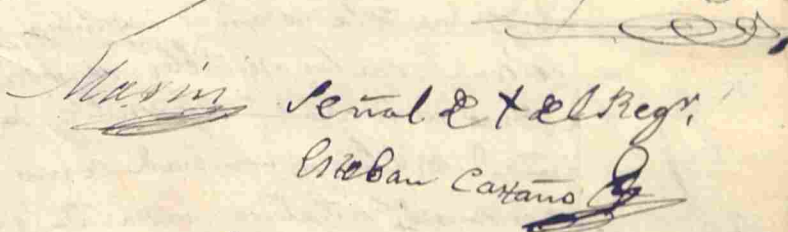 Marin
Señal de + del Regr.
Esteban Cazaño